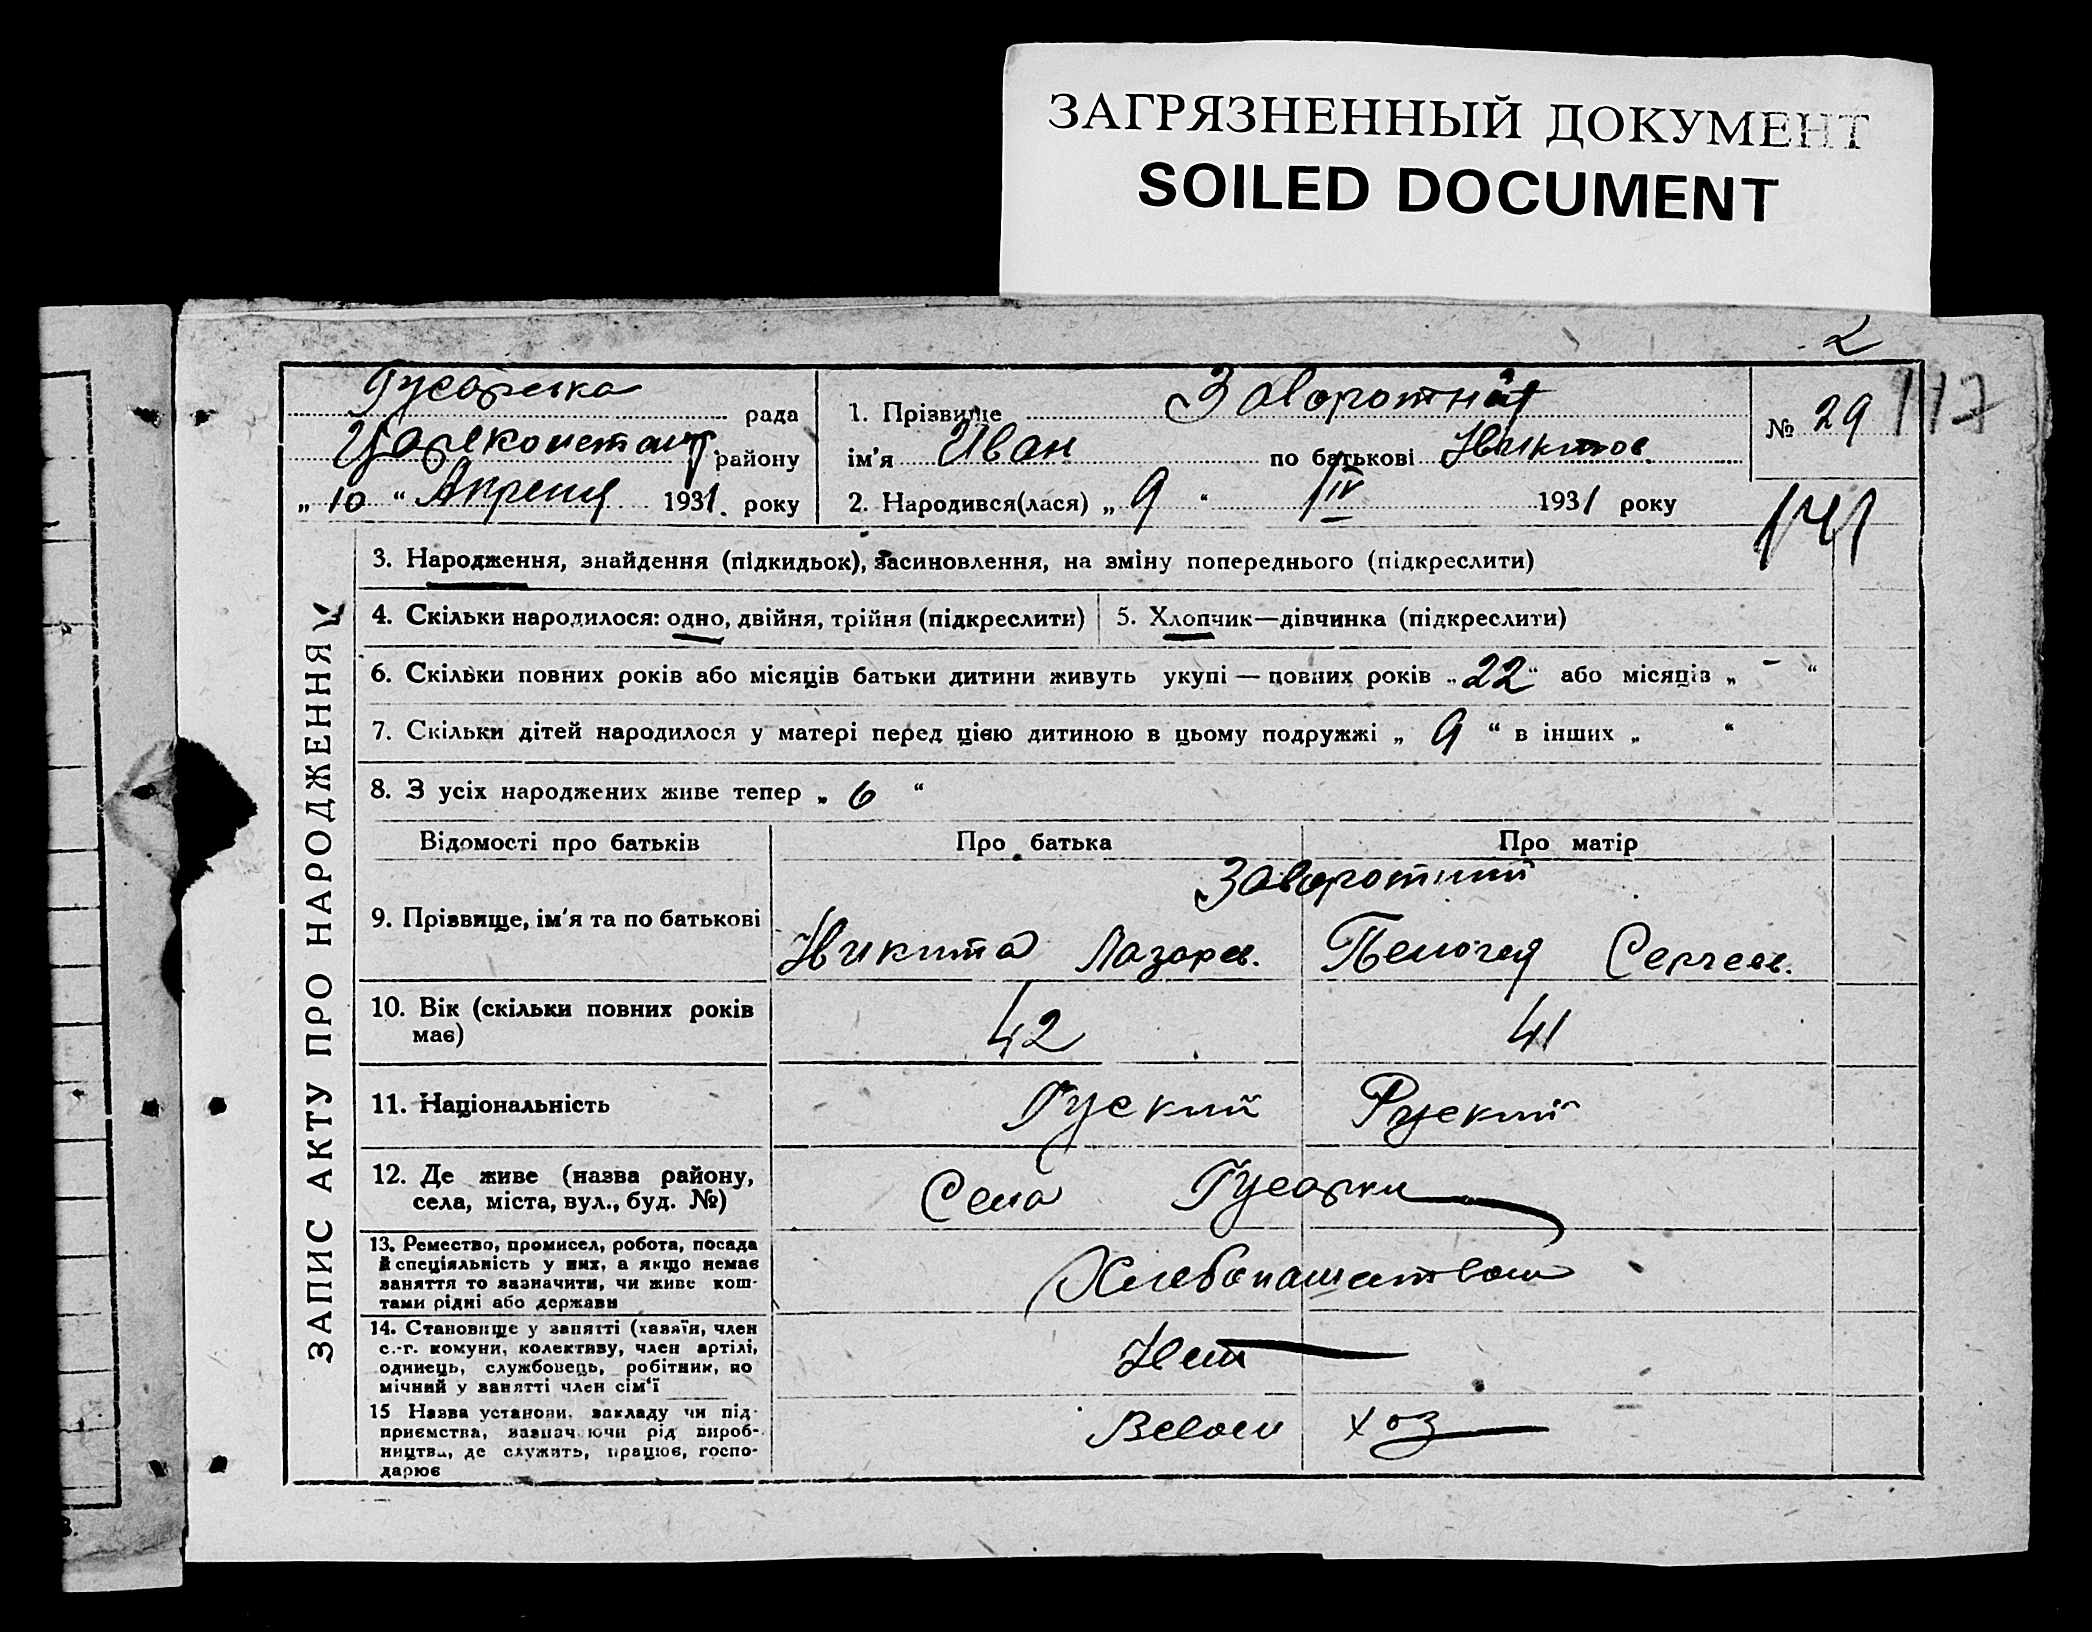 ЗАГРЯЗНЕННЫЙ ДОКУМЕНТ
SOILED DOCUMENT
2
Гусарська рада
Цареконстант. району
„ 10 “ Апреля 1931. року
1. Прізвище Заворотній
ім'я Иван по батькові Никитов.
2. Народився(лася) „ 9 “ IV 1931 року
№ 29
117
141
ЗАПИС АКТУ ПРО НАРОДЖЕННЯ
3. Народження, знайдення (підкидьок), засиновлення, на зміну попереднього (підкреслити)
4. Скільки народилося: одно, двійня, трійня (підкреслити)
5. Хлопчик—дівчинка (підкреслити)
6. Скільки повних років або місяців батьки дитини живуть укупі — повних років „ 22 “ або місяців „ - “
7. Скільки дітей народилося у матері перед цією дитиною в цьому подружжі „ 9 “ в інших „ “
8. З усіх народжених живе тепер „ 6 “
Відомості про батьків Про батька Про матір
Заворотний
9. Прізвище, ім'я та по батькові Никита Лазарев. Пелогея Сергеев.
10. Вік (скільки повних років
має) 42 41
11. Національність Руский Руский
12. Де живе (назва району,
села, міста, вул., буд. №) Села Гусарки
13. Ремество, промисел, робота, посада
й спеціяльність у них, а якщо немає
заняття то зазначити, чи живе кош-
тами рідні або держави
Хлебопашеством
14. Становище у занятті (хазяїн, член
с.-г. комуни, колективу, член артілі,
одинець, службовець, робітник, по
мічний у занятті член сім'ї
Нет
15 Назва установи, закладу чи під-
приємства, зазнач ючи рід вироб-
ництва, де служить, працює, госпо-
дарює
хоз